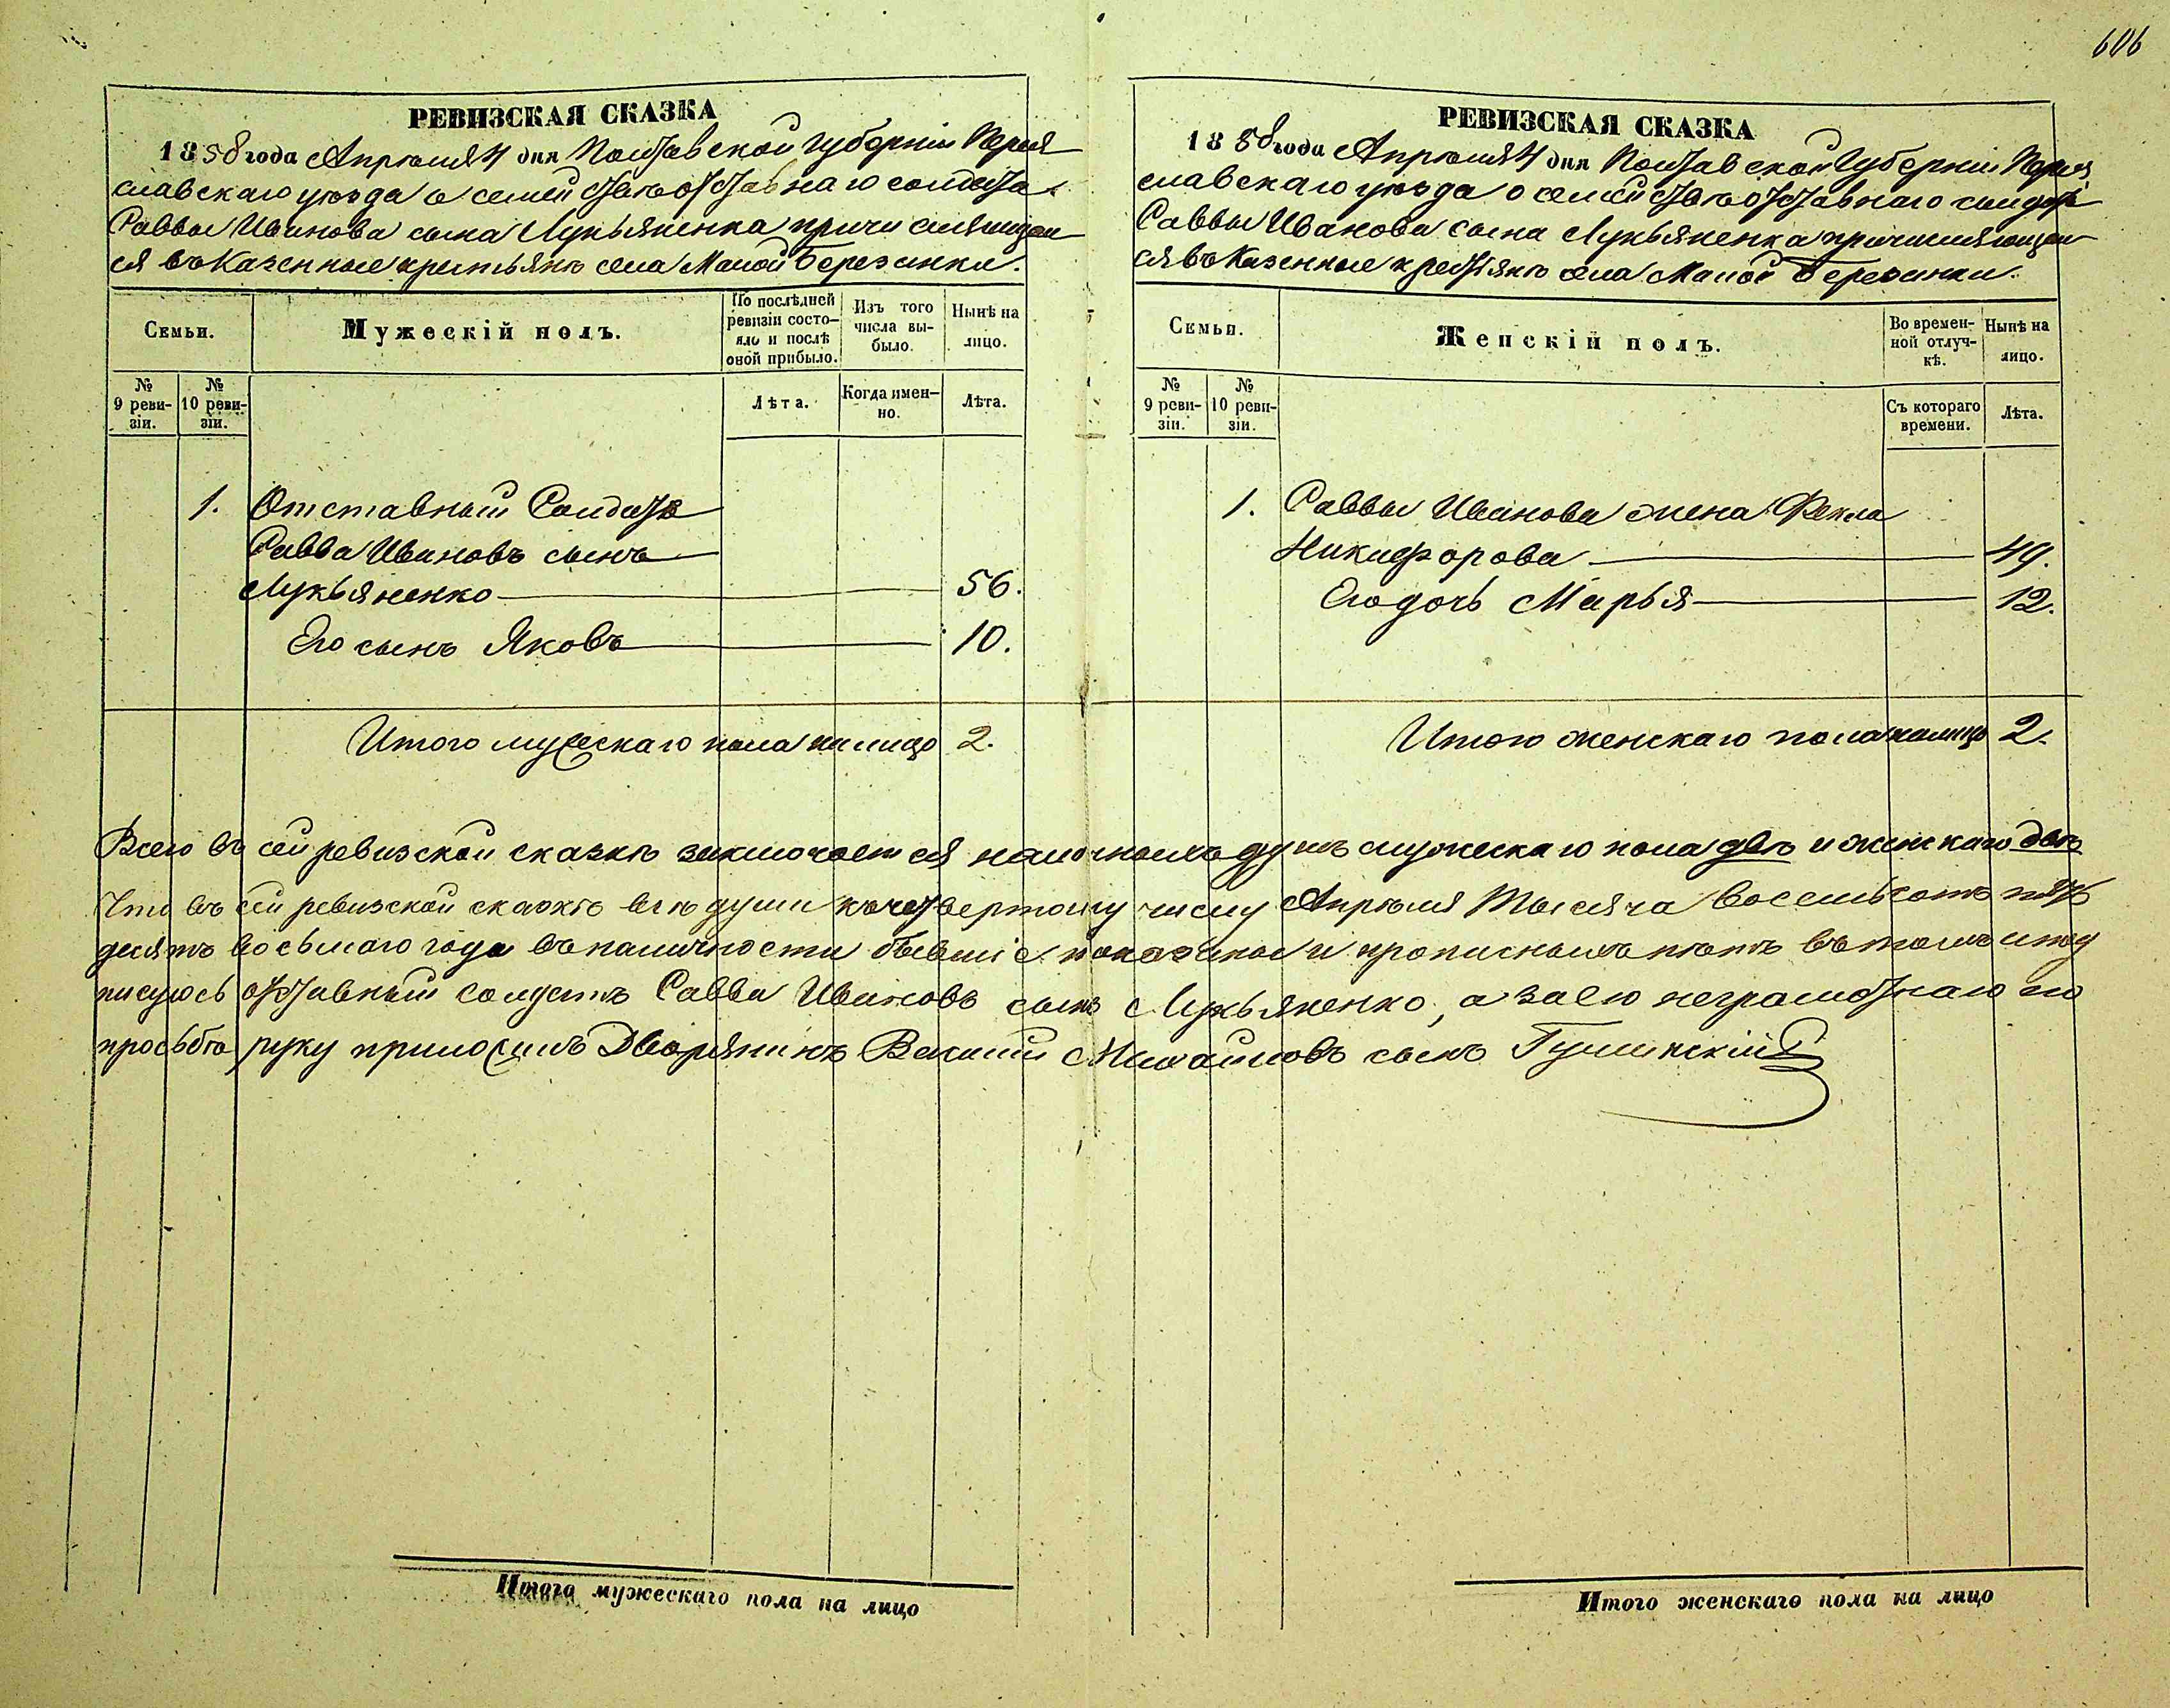 606
РЕВИЗСКАЯ СКАЗКА
1858 года Апрѣля 4 дня Полтавской Губерніи Перея
славскаго уѣзда о семействѣ отставнаго солдата
Саввы Иванова сына Лукьяненка причисляющаго
ся въ Казенные крестьяне села Малой Березанки.
Семьи.
Мужескій полъ.
По послѣдней ревизіи состо-яло и послѣ оной прибыло.
Изъ того числа вы-было.
Нынѣ на лицо.
№ 9 реви-зіи.
№ 10 реви-зіи.
Лѣта.
Когда имен-но.
Лѣта.
1. Отставный Солдатъ
Савва Ивановъ сынъ
Лукьяненко 56.
Его сынъ Яковъ 10.
Итого мужескаго пола налицо 2.
РЕВИЗСКАЯ СКАЗКА
1858 года Апрѣля 4 дня Полтавской Губерніи Перея
славскаго уѣзда о семействѣ отставнаго солдата
Саввы Иванова сына Лукьяненка причисляющаго
ся въ Казенные крестьяне села Малой Березанки.
Семьи.
Женскій полъ.
Во времен-ной отлуч-кѣ.
Нынѣ на лицо.
№ 9 реви-зіи.
№ 10 реви-зіи.
Съ котораго времени.
Лѣта.
1. Саввы Иванова жена Фекла
Никифорова 49.
Его дочь Марья 12.
Итого женскаго пола налицо 2.
Всего въ сей ревизской сказкѣ заключается наличныхъ душъ мужескаго пола двѣ и женскаго двѣ
Что въ сей ревизской сказкѣ всѣ души къ четвертому числу Апрѣля Тысяча восемьсотъ пять
десятъ восьмаго года въ наличности бывшіе показаны и прописныхъ нѣтъ въ томъ и под
писуюсь отставный солдатъ Савва Ивановъ сынъ Лукьяненко, а за его неграмотнаго по
просьбѣ руку приложилъ Дворянинъ Василій Михайловъ сынъ
Итого мужескаго пола на лицо
Итого женскаго пола на лицо